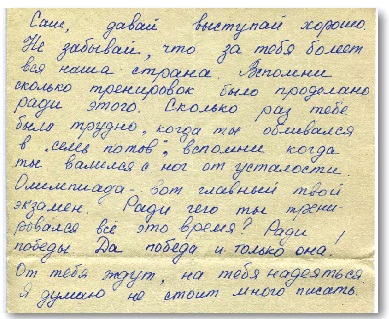 Саш, давай выступай хорошо.
Не забывай, что за тебя болеет
вся наша страна. Вспомни
сколько тренировок было проделано
ради этого. Сколько раз тебе
было трудно, когда ты обливался
в „семь потов", вспомни когда
ты валился с ног от усталости.
Олимпиада - вот главный твой
экзамен. Ради чего ты трени-
ровался всё это время? Ради
победы Да победа и только она!
От тебя ждут, на тебя надеяться
Я думаю не стоит много писать.